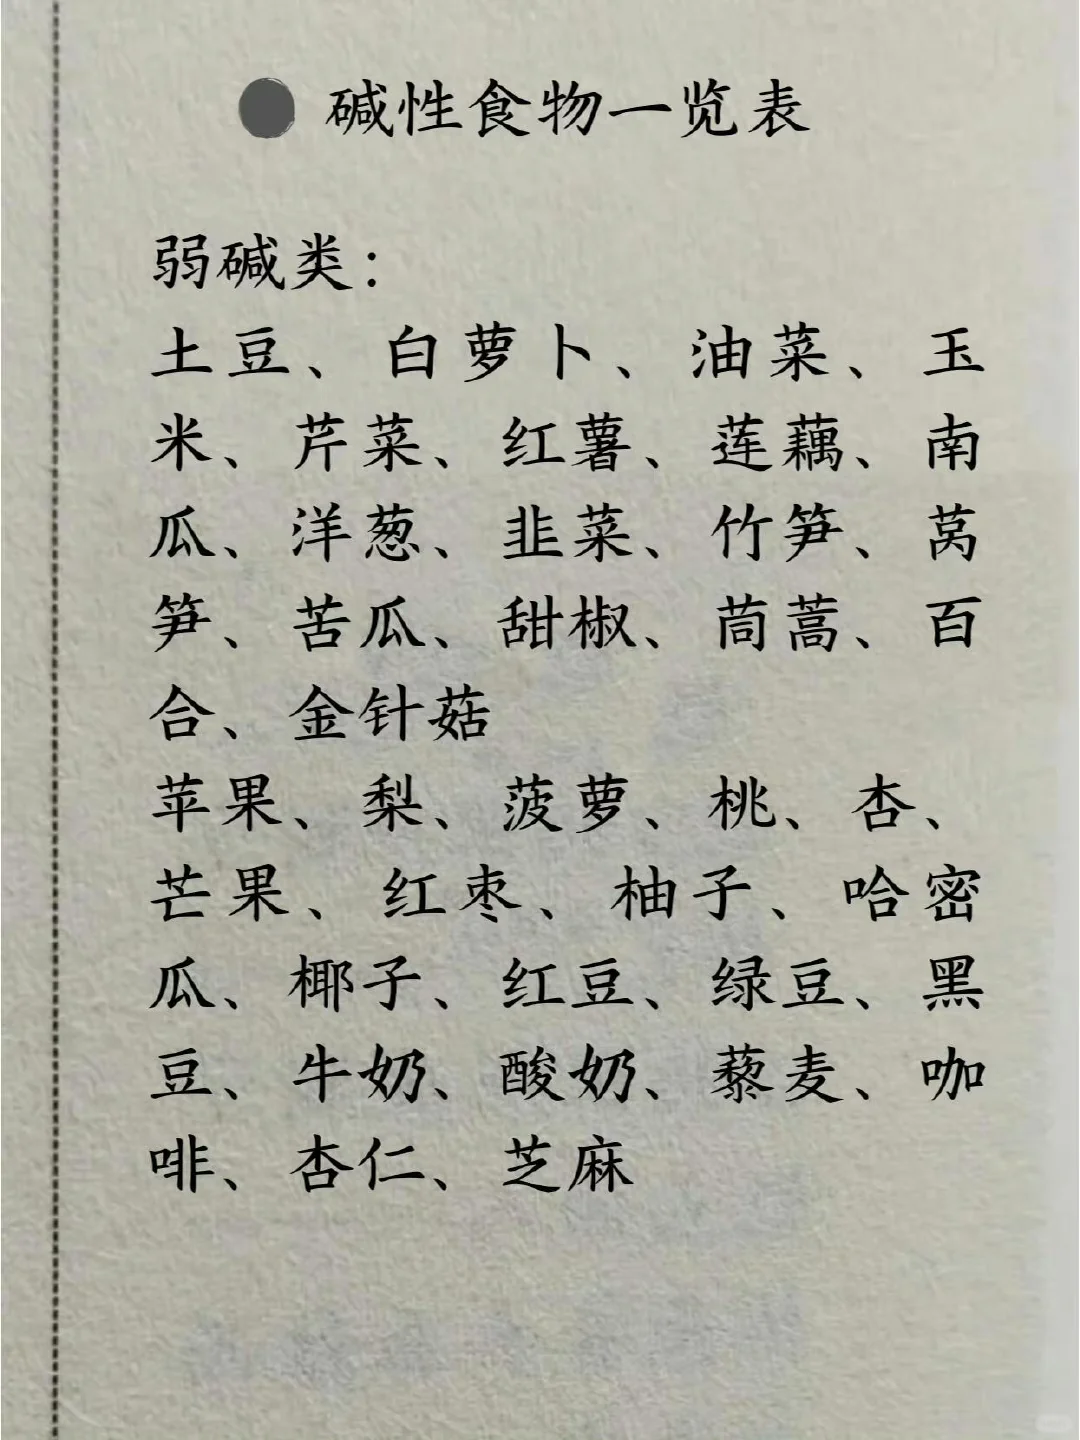 碱性食物一览表
弱碱类：
土豆、白萝卜、油菜、玉
米、芹菜、红薯、莲藕、南
瓜、洋葱、韭菜、竹笋、莴
笋、苦瓜、甜椒、茼蒿、百
合、金针菇
苹果、梨、菠萝、桃、杏、
芒果、红枣、柚子、哈密
瓜、椰子、红豆、绿豆、黑
豆、牛奶、酸奶、藜麦、咖
啡、杏仁、芝麻